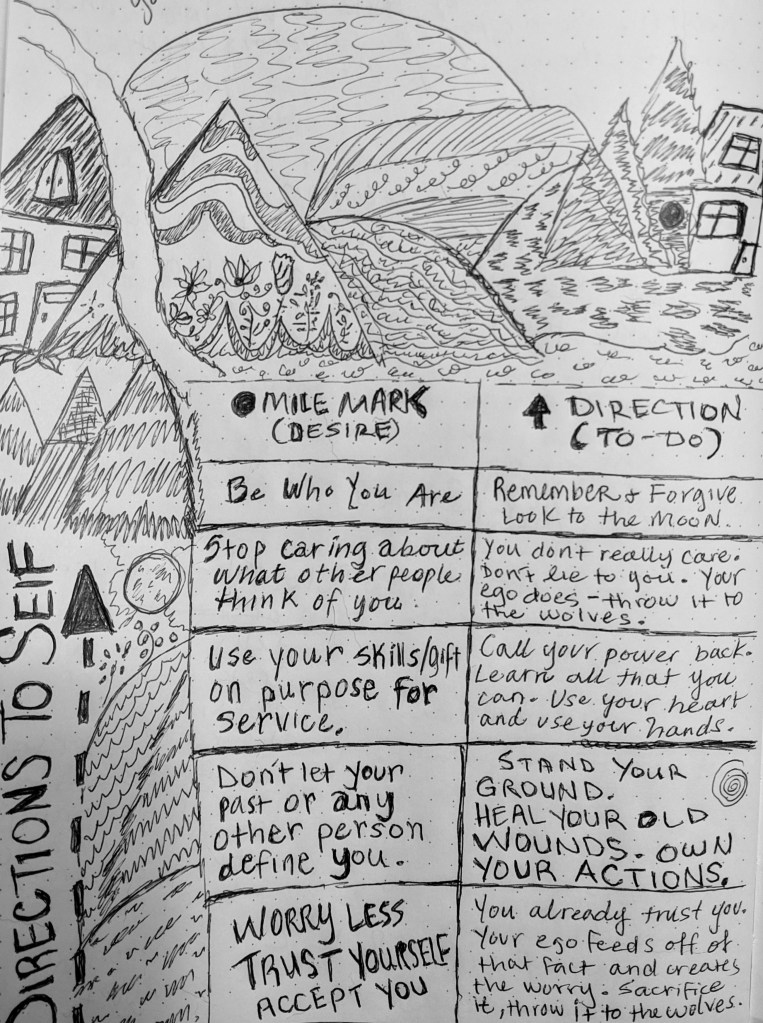 DIRECTIONS TO SELF
MILE MARK
(DESIRE)
DIRECTION
(TO-DO)
Be Who You Are
Remember & Forgive
Look to the Moon.
Stop caring about
what other people
think of you.
You don't really care.
Don't lie to you. Your
ego does - throw it to
the wolves.
Use your skills/gift
on purpose for
service.
Call your power back.
Learn all that you
can. Use your heart
and use your hands.
Don't let your
past or any
other person
define you.
STAND YOUR
GROUND.
HEAL YOUR OLD
WOUNDS. OWN
YOUR ACTIONS.
WORRY LESS
TRUST YOURSELF
ACCEPT YOU
You already trust you.
Your ego feeds off of
that fact and creates
the worry. Sacrifice
it, throw it to the wolves.